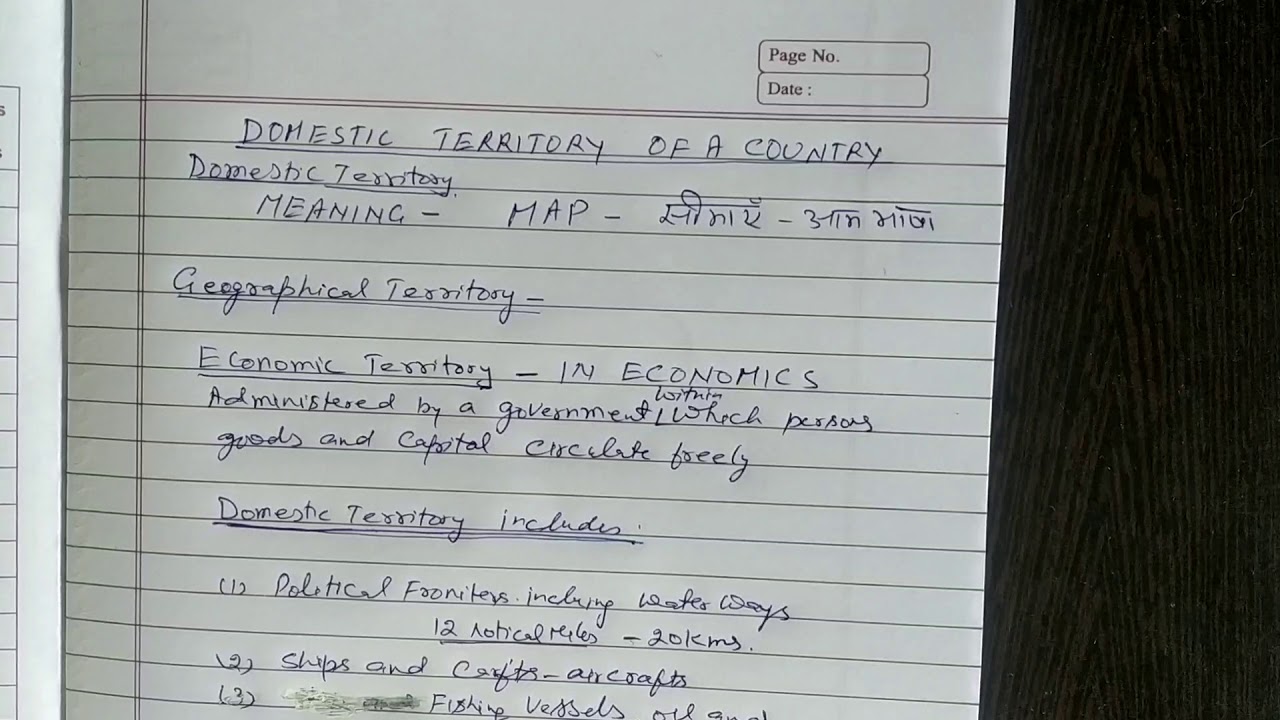 Page No.
Date :
DOMESTIC TERRITORY OF A COUNTRY
Domestic Territory
MEANING - MAP - सीमाएँ - आम भाषा
Geographical Territory -
Economic Territory - IN ECONOMICS
within
Administered by a government which persons
goods and Capital circulate freely
Domestic Territory includes:
(1) Political Froniters. incluing water ways
12 notical miles - 20kms.
(2) Ships and Carfts - aircrafts
(3) Fishing Vessels oil and